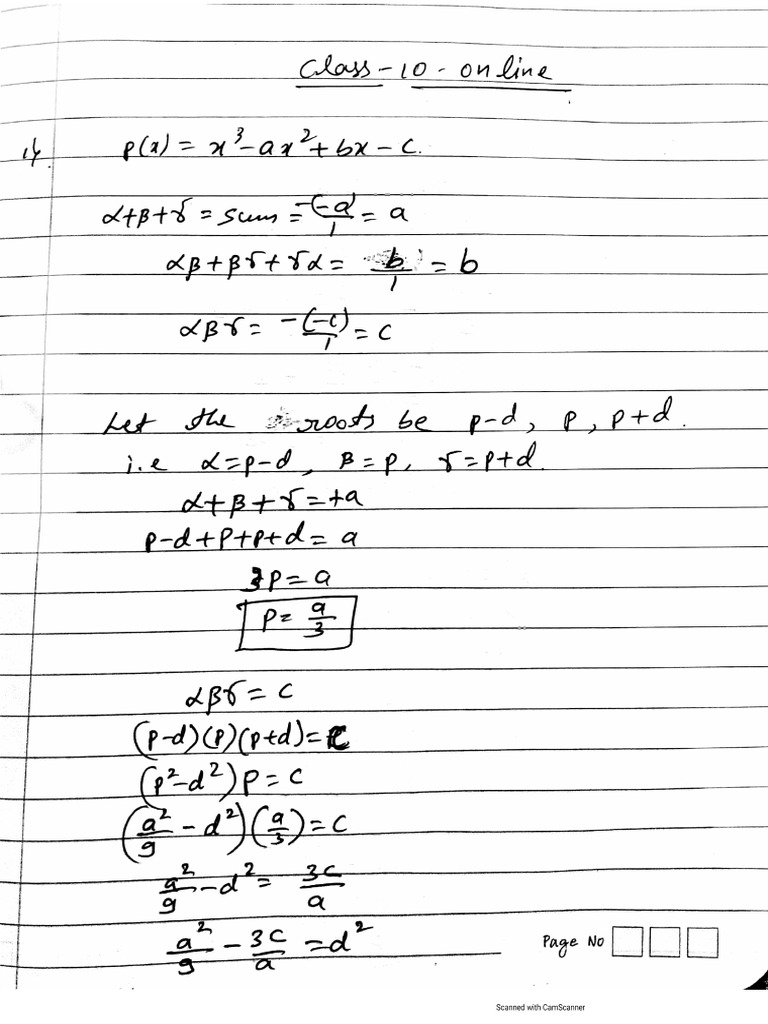 Class-10-online
1) p(x) = x³-ax²+bx-c.
α+β+γ = sum = -(-a)/1 = a
αβ+βγ+γα = b/1 = b
αβγ = -(-c)/1 = c
Let the roots be p-d, p, p+d.
i.e α=p-d, β=p, γ=p+d.
α+β+γ=+a
p-d+p+p+d = a
3p = a
p = a/3
αβγ = c
(p-d)(p)(p+d)=c
(p²-d²)p = c
(a²/9 - d²)(a/3) = c
a²/9 - d² = 3c/a
a²/9 - 3c/a = d²
Page No
Scanned with CamScanner